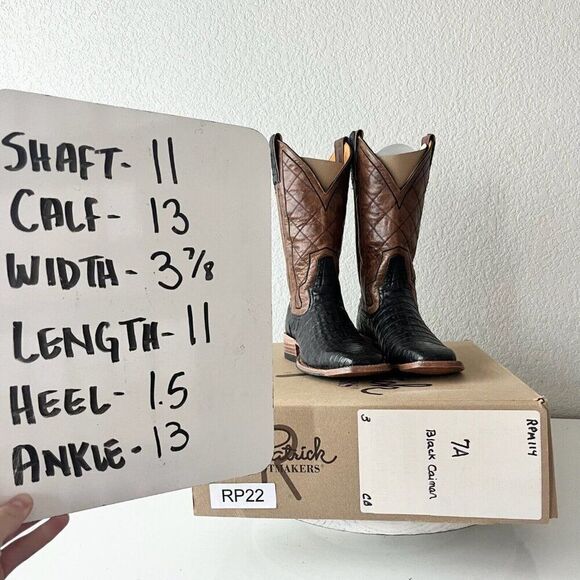 SHAFT- 11
CALF- 13
WIDTH- 3 7/8
LENGTH- 11
HEEL- 1.5
ANKLE- 13
R
Patrick
TMAKERS
RP22
3
7A
Black Caiman
CB
RPM114